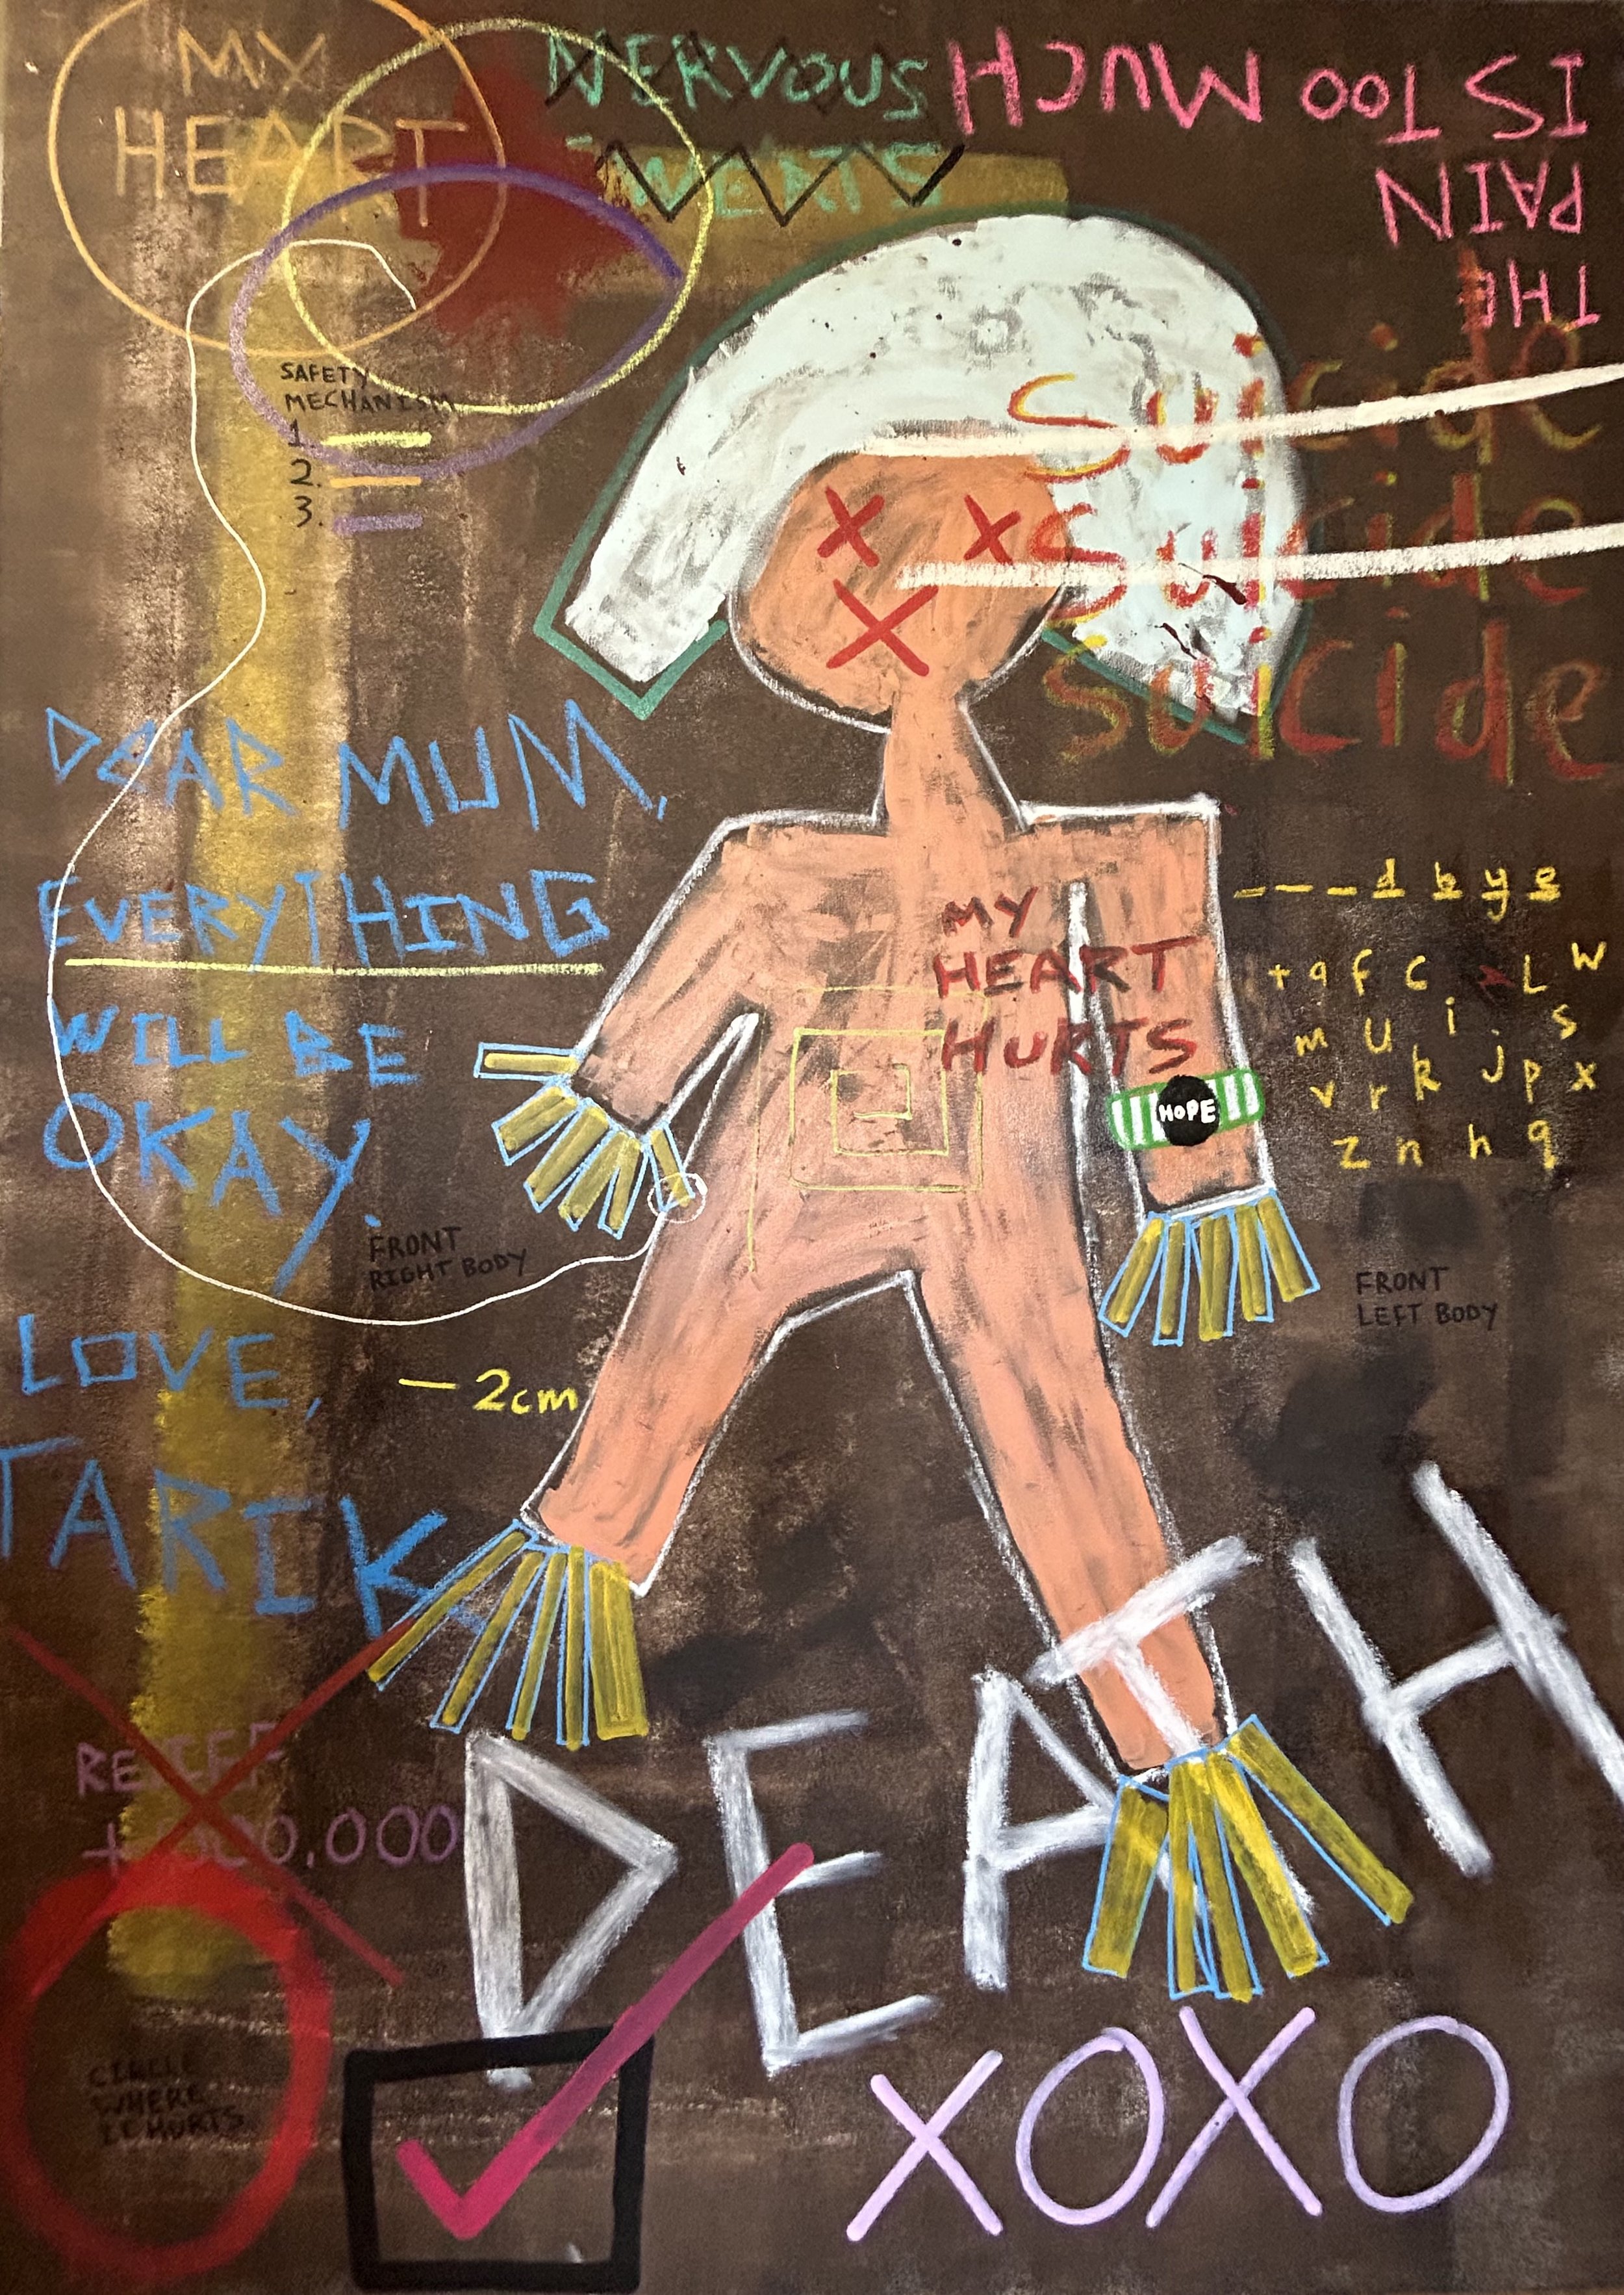 MY
HEART
NERVOUS
SWEATS
THE
PAIN
IS TOO MUCH
SAFETY
MECHANISM
1.
2.
3.
Suicide
Suicide
Suicide
DEAR MUM,
EVERYTHING
WILL BE
OKAY.
LOVE,
TARIK
MY
HEART
HURTS
HOPE
_ _ _ d b y e
t q f c L W
m U i . s
v r k J p x
z n h q
FRONT
RIGHT BODY
FRONT
LEFT BODY
— 2cm
RELIEF
DEATH
CIRCLE
WHERE
IT HURTS
XOXO